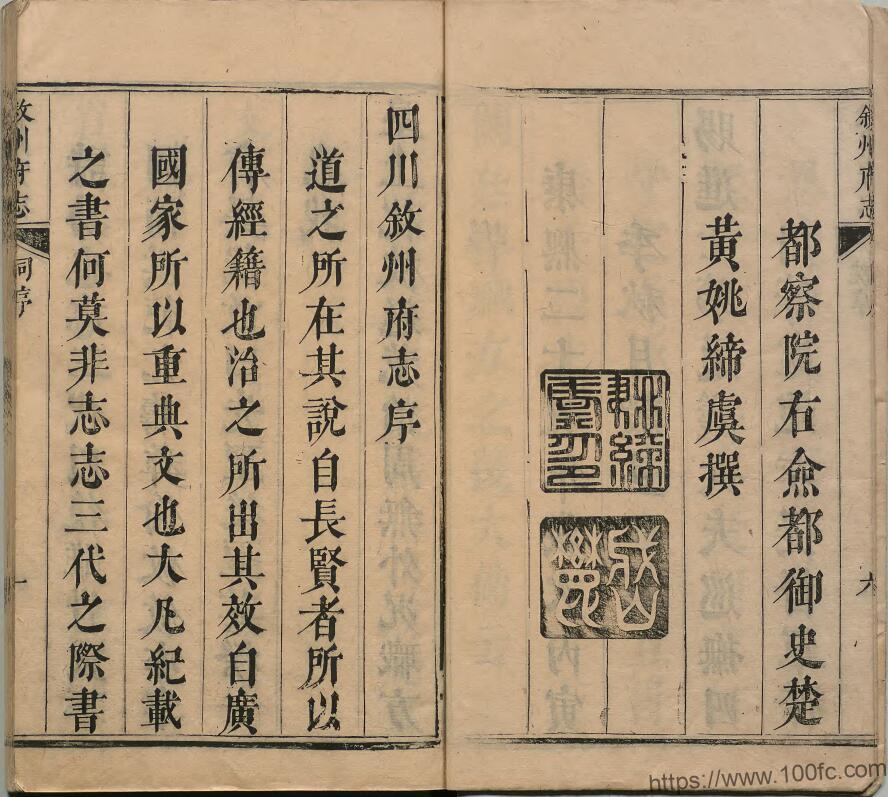 敘州府志
六
都察院右僉都御史楚
黃姚締虞撰
姚締
虞印
四川敘州府志序
道之所在其說自長賢者所以
傳經籍也治之所出其效自廣
國家所以重典文也大凡紀載
之書何莫非志志三代之際書
敘州府志
序
一
https://www.100fc.com